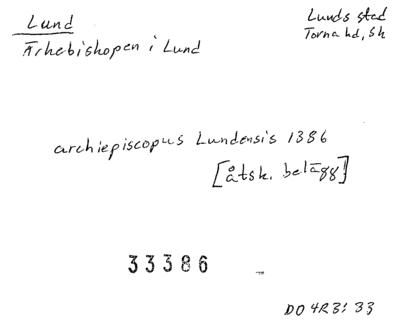 Lund
Ärkebiskopen i Lund
Lunds stad
Torna hd, Sk
archiepiscopus Lundensis 1386
[åtsk. belägg]
33386
DO 4R3: 33